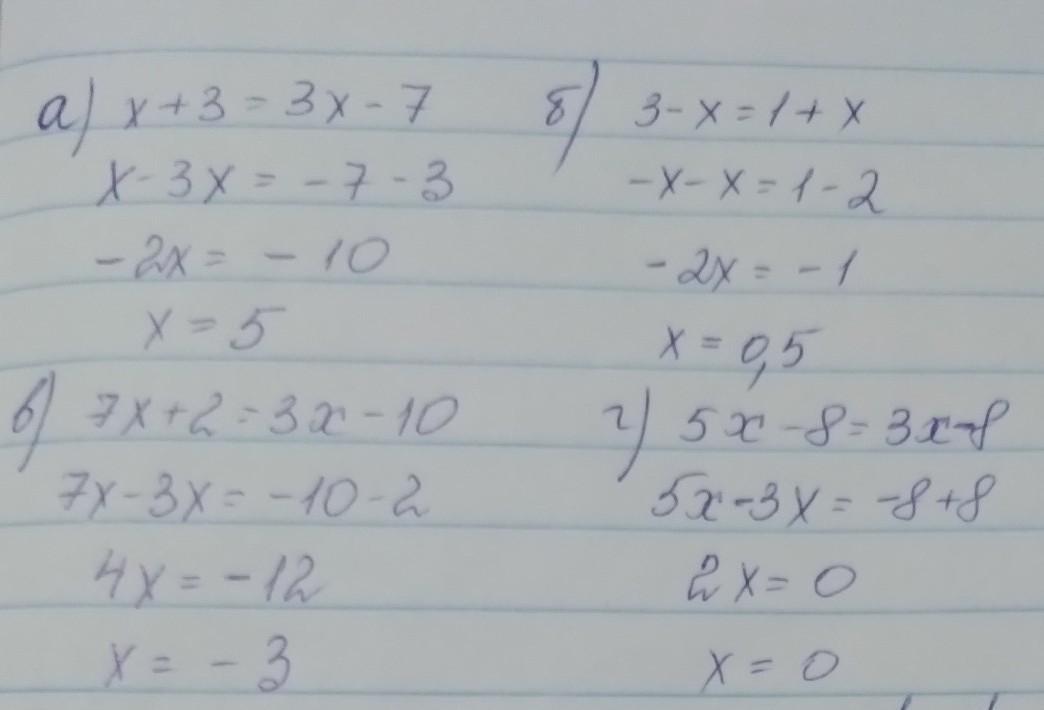 а) x + 3 = 3x - 7
x - 3x = -7 - 3
-2x = -10
x = 5
б) 3 - x = 1 + x
-x - x = 1 - 2
-2x = -1
x = 0,5
в) 7x + 2 = 3x - 10
7x - 3x = -10 - 2
4x = -12
x = -3
г) 5x - 8 = 3x - 8
5x - 3x = -8 + 8
2x = 0
x = 0